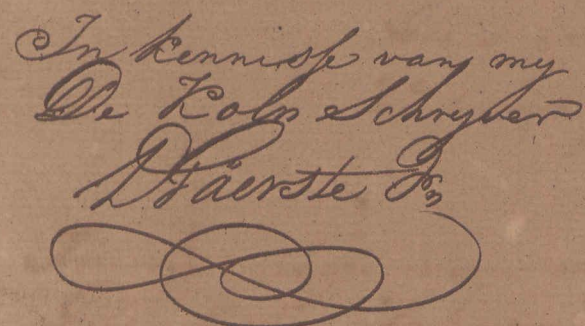 In kennisse van my
De Kols Schryver
D Faerste Jr